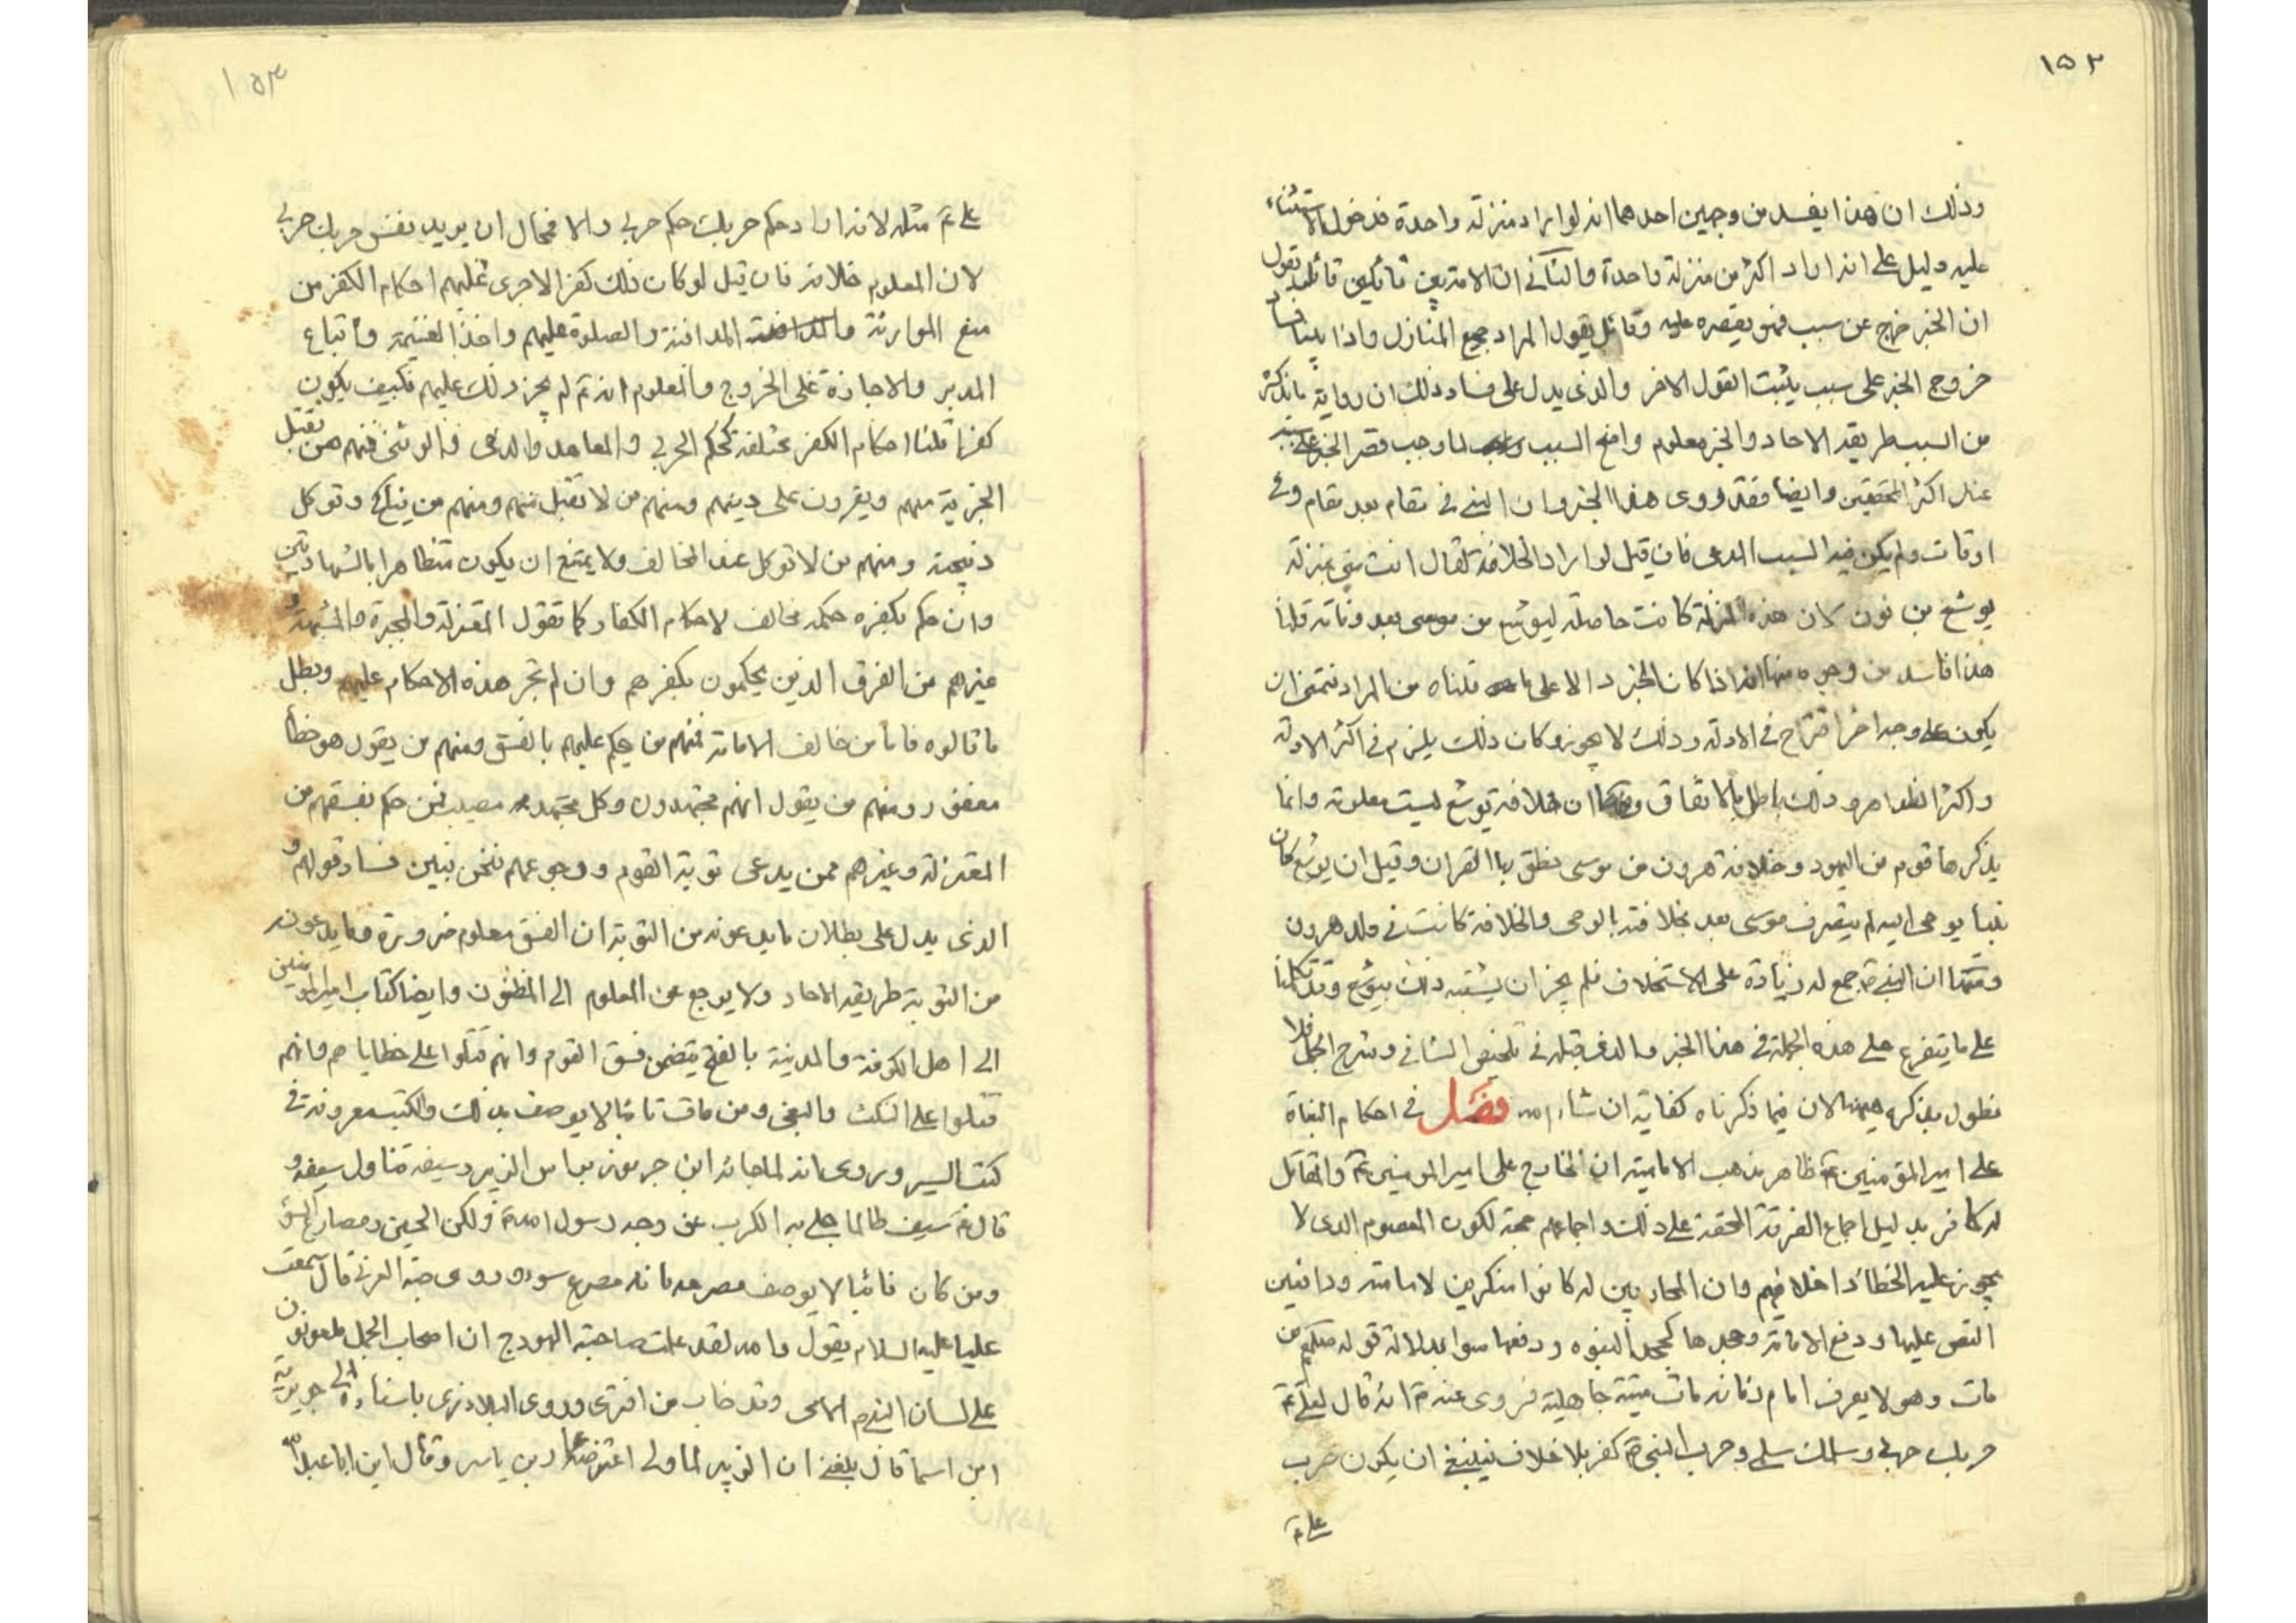 ١٥٢
وذلك ان هذا يفسد من وجهين احدهما انه لو اراد منزلة واحدة فدخول الاستثناء
عليه دليل على انه اراد اكثر من منزلة واحدة والثانى ان الامة بين قائلين قائل يقول
ان الخبر خرج عن سبب فهو يقصره عليه وقائل يقول المراد جميع المنازل واذا بينا فساد
خروج الخبر على سبب يثبت القول الاخر والذى يدل على فساد ذلك ان رواية ما يذكر
من السبب طريقه الاحاد والخبر معلوم وا السبب لما وجب قصر الخبر على سببه
عند اكثر المحققين وايضا فقد روى هذا الخبر وان النبى فى مقام بعد مقام وفى
اوقات ولم يكن فيه السبب المدعى فان قيل لو اراد الخلافة لقال انت منى بمنزلة
يوشع بن نون لان هذه المنزلة كانت حاصلة ليوشع من موسى بعد وفاته قلنا
هذا فاسد من وجوه منها انه اذا كان الخبر دالا على ما قلناه من المراد فتمنى ان
يكون على وجه اخر اقتراح فى الادلة وذلك لا يجوز وكان ذلك يلزم فى اكثر الادلة
واكثر الظواهر وذلك باطل بالاتفاق ومنها ان خلافة يوشع ليست معلومة وانما
يذكرها قوم من اليهود وخلافة هرون من موسى نطق بها القران وقيل ان يوشع كان
نبيا يوحى اليه لم يتصرف موسى بعد بخلافته بالوحى والخلافة كانت فى ولد هرون
ومنها ان النبى ص جمع له زيادة على الاستخلاف فلم يجز ان يشبه ذلك بيوشع وقد تكلمنا
على ما يتفرع على هذه الجملة فى هذا الخبر والذى قبله فى تلخيص الشافى وشرح الجمل فلا
نطول بذكره هيهنا لان فيما ذكرناه كفاية ان شاء الله فصل فى احكام البغاة
على امير المؤمنين ع ظاهر مذهب الامامية ان الخارج على امير المومنين ع والمقاتل
له كافر بدليل اجماع الفرقة المحقة على ذلك واجماعهم حجة لكون المعصوم الذى لا
يجوز عليه الخطأ داخلا فيهم وان المحاربين له كانوا منكرين لامامته ودافعين
النص عليها ودفع الامامة وجحدها كجحد النبوه ودفعها سوا بدلالة قوله صلعم من
مات وهو لا يعرف امام زمانه مات ميتة جاهلية وروى عنه ص انه قال لعلى ع
حربك حربى وسلمك سلمى وحرب النبى ص كفر بلا خلاف فينبغى ان يكون حرب
على ع
١٥٣
على ع مثله لانه اراد حكم حربك حكم حربى والا فمحال ان يريد نفس حربك حربى
لان المعلوم خلافه فان قيل لو كان ذلك كفرا لاجرى عليهم احكام الكفر من
منع الموارثة والمدافنة والصلوة عليهم واخذ الغنيمة واتباع
المدبر والاجازة على الخروج والمعلوم انه ع لم يجز ذلك عليهم فكيف يكون
كفرا قلنا احكام الكفر مختلفة كحكم الحربى والمعاهد والذمى والوثنى فمنهم من تقبل
الجزية منهم ويقرون على دينهم ومنهم من لا تقبل منهم ومنهم من يناكح وتوكل
ذبيحته ومنهم من لا توكل عند المخالف ولا يمتنع ان يكون متظاهرا بالشهادتين
وان حكم بكفره حكمه مخالف لاحكام الكفار كما تقول المعتزلة والمجبرة والمشبهة و
غيرهم من الفرق الذين يحكمون بكفرهم وان لم تجر هذه الاحكام عليهم وبطل
ما قالوه فاما من خالف الامامة فمنهم من يحكم عليهم بالفسق ومنهم من يقول هو خطأ
مغفور ومنهم من يقول انهم مجتهدون وكل مجتهد مصيب فمن حكم بفسقهم من
المعتزلة وغيرهم ممن يدعى توبة القوم ورجوعهم فنحن نبين فساد قولهم و
الذى يدل على بطلان ما يدعونه من التوبة ان الفسق معلوم ضرورة وما يدعونه
من التوبة طريقه الاحاد ولا يرجع عن المعلوم الى المظنون وايضا كتاب امير المومنين
الى اهل الكوفة والمدينة بالفتح يتضمن فسق القوم وانهم قتلوا على خطاياهم وانهم
قتلوا على النكث والبغى ومن مات تائبا لا يوصف بذلك والكتب معروفة فى
كتب السير وروى انه لما جائه ابن جرموز براس الزبير وسيفه تناول سيفه و
قال ع سيف طالما جلى به الكرب عن وجه رسول الله ص ولكن الحين ومصارع السوء
ومن كان تائبا لا يوصف مصرعه بانه مصرع سوء وروى حبة العرنى قال سمعت
عليا عليه السلام يقول والله لقد علمت صاحبة الهودج ان اصحاب الجمل ملعونون
على لسان النبى الامى وقد خاب من افترى وروى البلاذرى باسناده الى جويرية
ابن اسما قال بلغنى ان الزبير لما ولى اعترضه عمار بن ياسر وقال اين ابا عبد الله